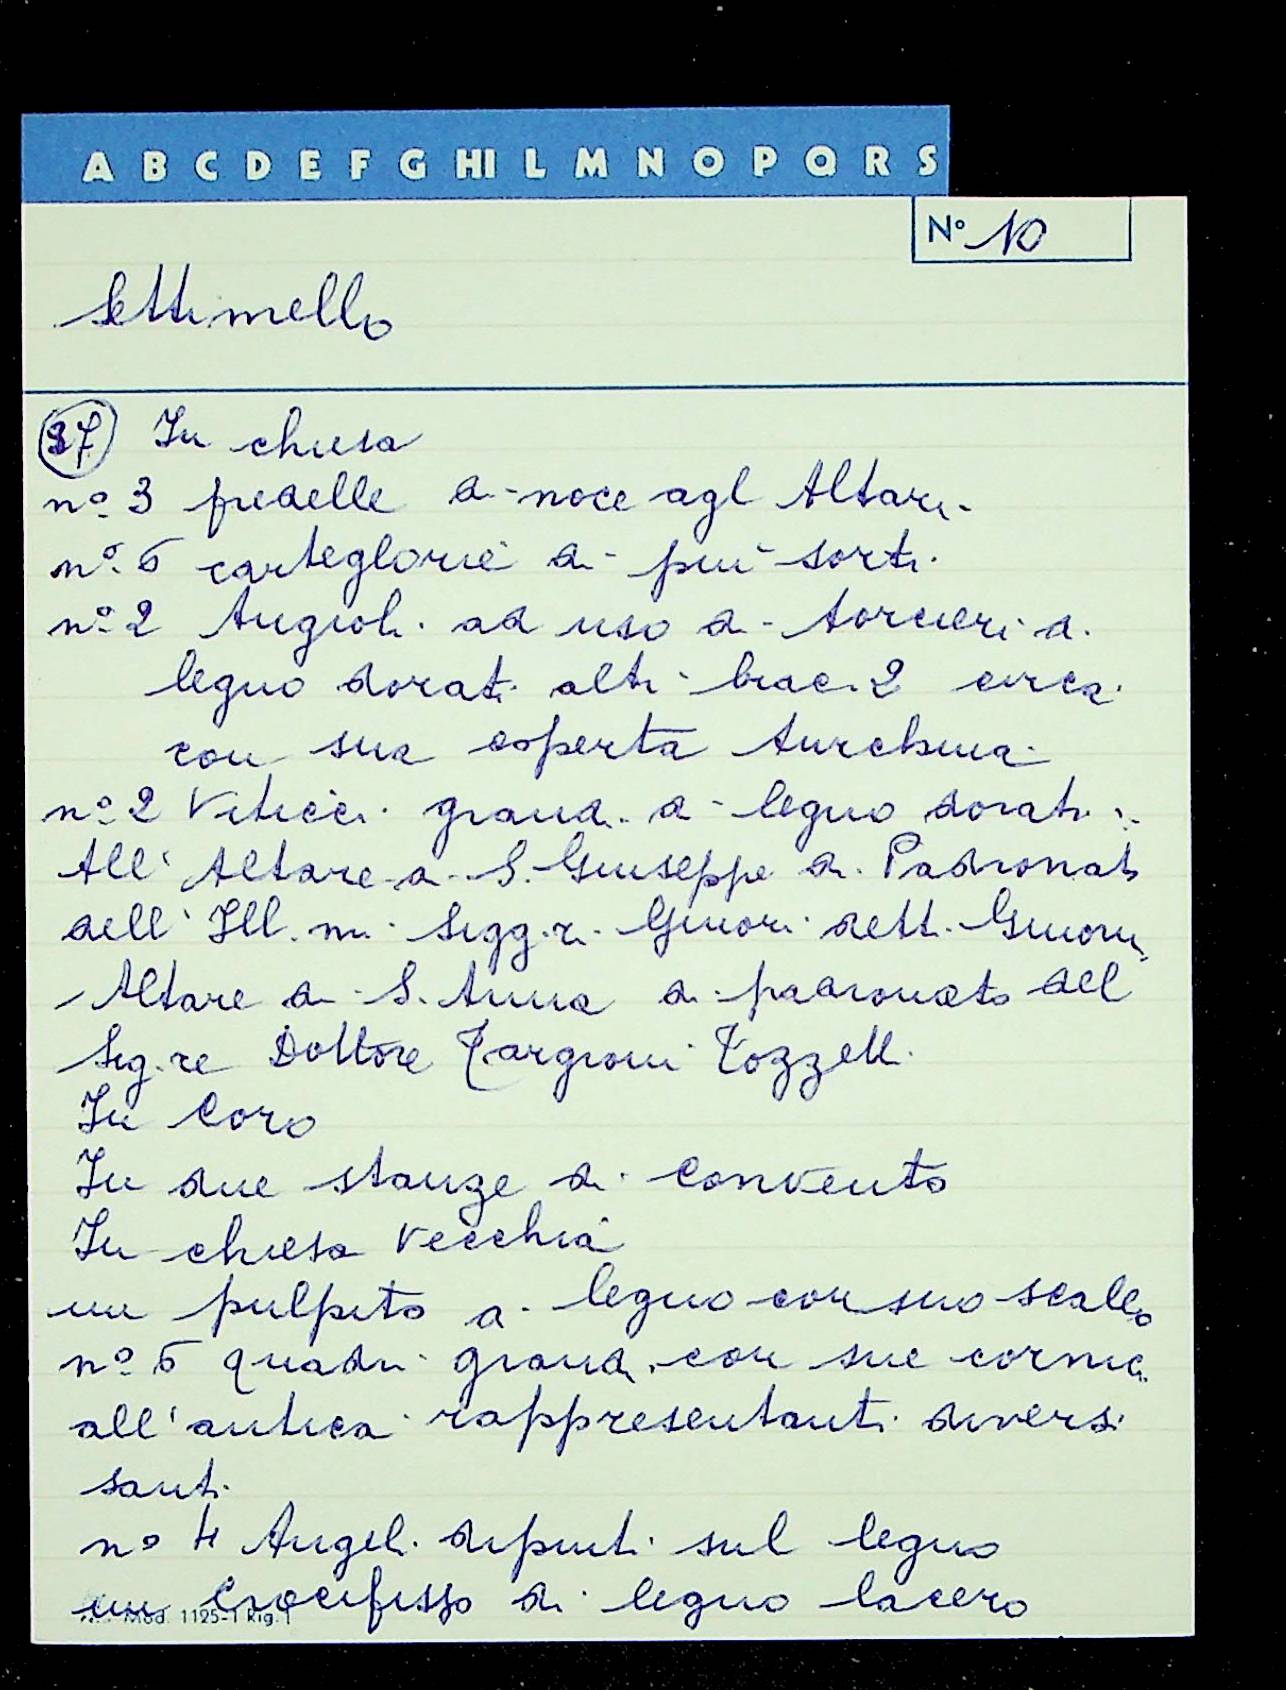 A B C D E F G HI L M N O P Q R S
N° 10
Settimello
37 In chiesa
n° 3 predelle di noce agl Altari
n° 6 carteglorie di più sorti
n° 2 Angioli ad uso di torcieri di
legno dorati alti brac. 2 circa
con sua coperta turchina
n° 2 Viticci grandi di legno dorati
All' Altare di S. Giuseppe di Padronato
dell' Ill.mi Sigg.ri Ginori detti Ginori
Altare di S. Anna di padronato del
Sig.re Dottore Targioni Tozzetti
In Coro
In due stanze di Convento
In chiesa Vecchia
un pulpito di legno con suo scaleo
n° 6 quadri grandi con sue cornici
all'antica rappresentanti diversi
santi
n° 4 Angeli dipinti sul legno
un Crocifisso di legno lacero
Mod. 1125-1 Rig. 1